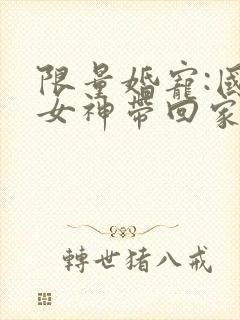 限量婚寵:國
女神帶回家
轉世豬八戒